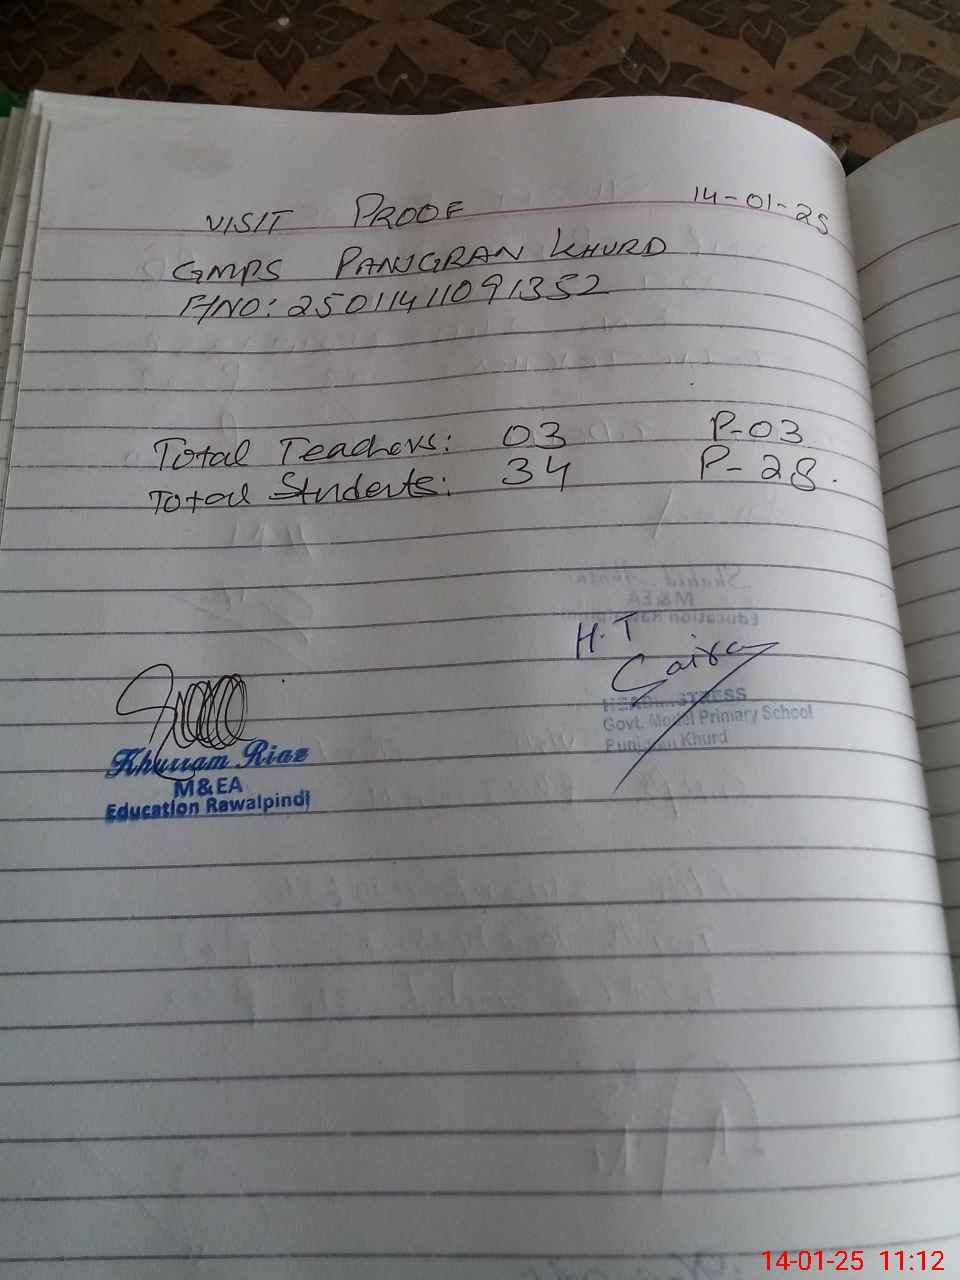 VISIT PROOF 14-01-25
GMPS PANJGRAN KHURD
F/NO: 25011411091352
Total Teachers: 03 P-03
Total Students: 34 P-28.
Shahid
M&EA
Education Rawalpindi
H.T
HEADMISTRESS
Govt. Model Primary School
Khurd
Khurram Riaz
M&EA
Education Rawalpindi
14-01-25 11:12